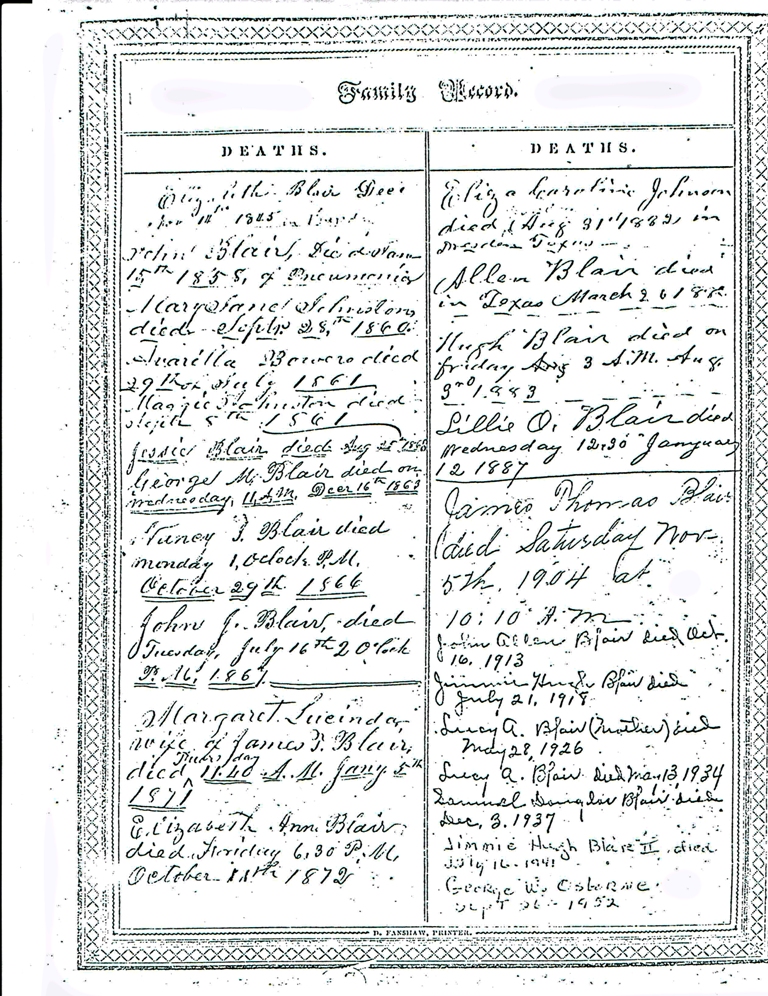 Family Record.
DEATHS.
Blair Decd
14th 1845
John Blair, Died
15th 1858, of Pneumonia
Mary Jane Johnston
died Septr 28th 1860
Avarilla Bowers died
29th of July 1861
Maggie Johnston died
Septr 5th 1861
Jessie Blair died Aug 25th
George M. Blair died on
Wednesday, 11, A.M. Decr 16th 1863
Nancy J. Blair died
monday 1, Oclock P.M.
October 29th 1866
John J. Blair, died
Tuesday, July 16th 2 Oclock
P.M. 1867
Margaret Lucinda,
wife of James T. Blair,
Thursday
died 11.40 A.M. Jany 5th
1871
Elizabeth Ann Blair
died Friday 6,30 P.M,
October 11th 1872
DEATHS.
Eliza Caroline Johnson
died Aug 31st in
Texas
Allen Blair died
in Texas March 26
Hugh Blair died on
friday Aug 3 A.M. Aug.
3rd 1883
Lillie O. Blair died
Wednesday 12.30 January
12 1887
James Thomas Blair
died Saturday Nov-
5th. 1904 at
10:10 A.M
John Allen Blair Died Oct.
16, 1913
Jimmie Hugh Blair died
July 21, 1918
Lucy A. Blair (Mother) died
May 28, 1926
Lucy A. Blair died Mar 13 1934
Samuel Douglas Blair died
Dec, 3. 1937
Jimmie Hugh Blair II died
July 16 - 1941
George W. Osborne
Sept - 1952
D. FANSHAW, PRINTER.